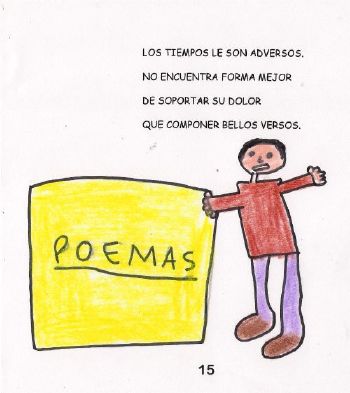 LOS TIEMPOS LE SON ADVERSOS.
NO ENCUENTRA FORMA MEJOR
DE SOPORTAR SU DOLOR
QUE COMPONER BELLOS VERSOS.
POEMAS
15